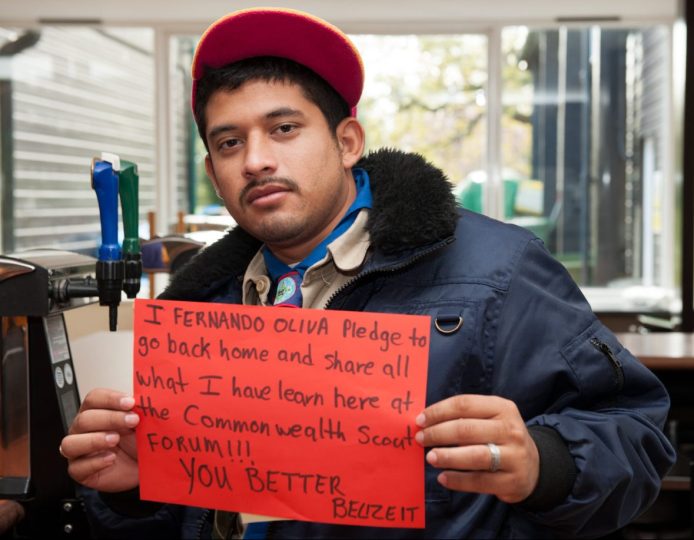 I FERNANDO OLIVA Pledge to
go back home and share all
what I have learn here at
the Commonwealth Scout
FORUM!!!
YOU BETTER
BELIZE IT